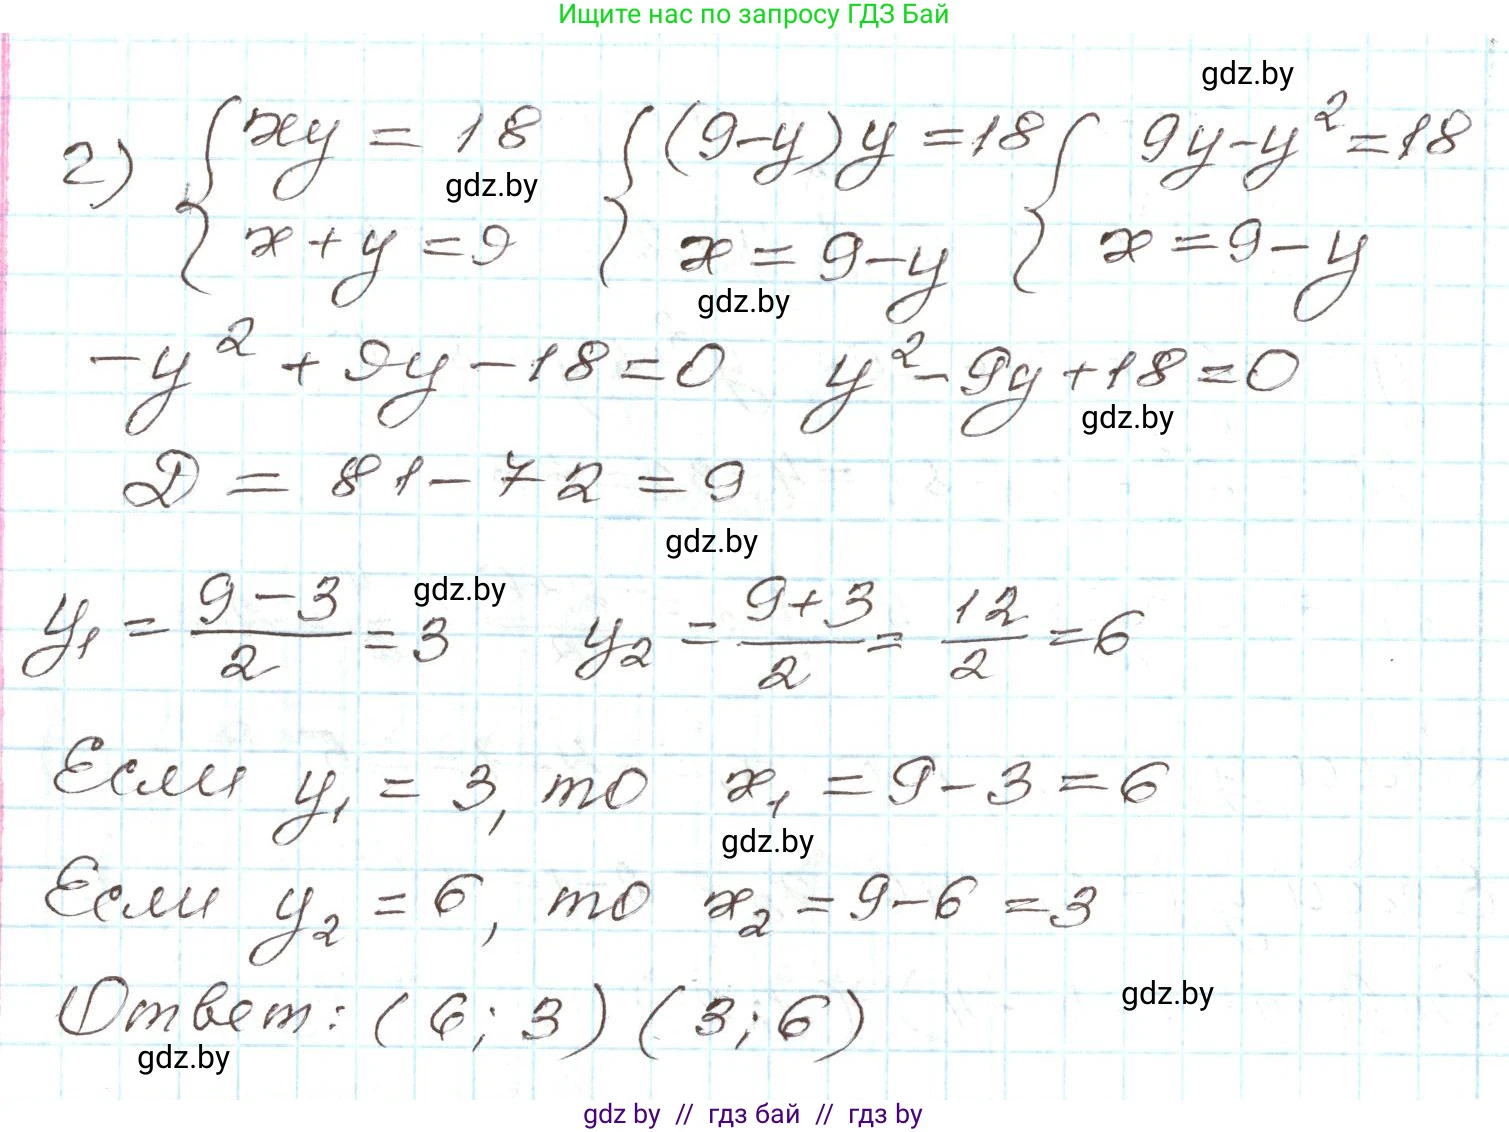 Ищите нас по запросу ГДЗ Бай
gdz.by
2) { xy = 18 { (9-y)y = 18 { 9y - y² = 18
gdz.by
{ x + y = 9 { x = 9 - y { x = 9 - y
gdz.by
-y² + 9y - 18 = 0 y² - 9y + 18 = 0
gdz.by
D = 81 - 72 = 9
gdz.by
gdz.by
y₁ = (9-3)/2 = 3 y₂ = (9+3)/2 = 12/2 = 6
Если y₁ = 3, то x₁ = 9 - 3 = 6
gdz.by
Если y₂ = 6, то x₂ = 9 - 6 = 3
gdz.by
Ответ: (6; 3) (3; 6)
gdz.by
gdz by // гдз бай // гдз by